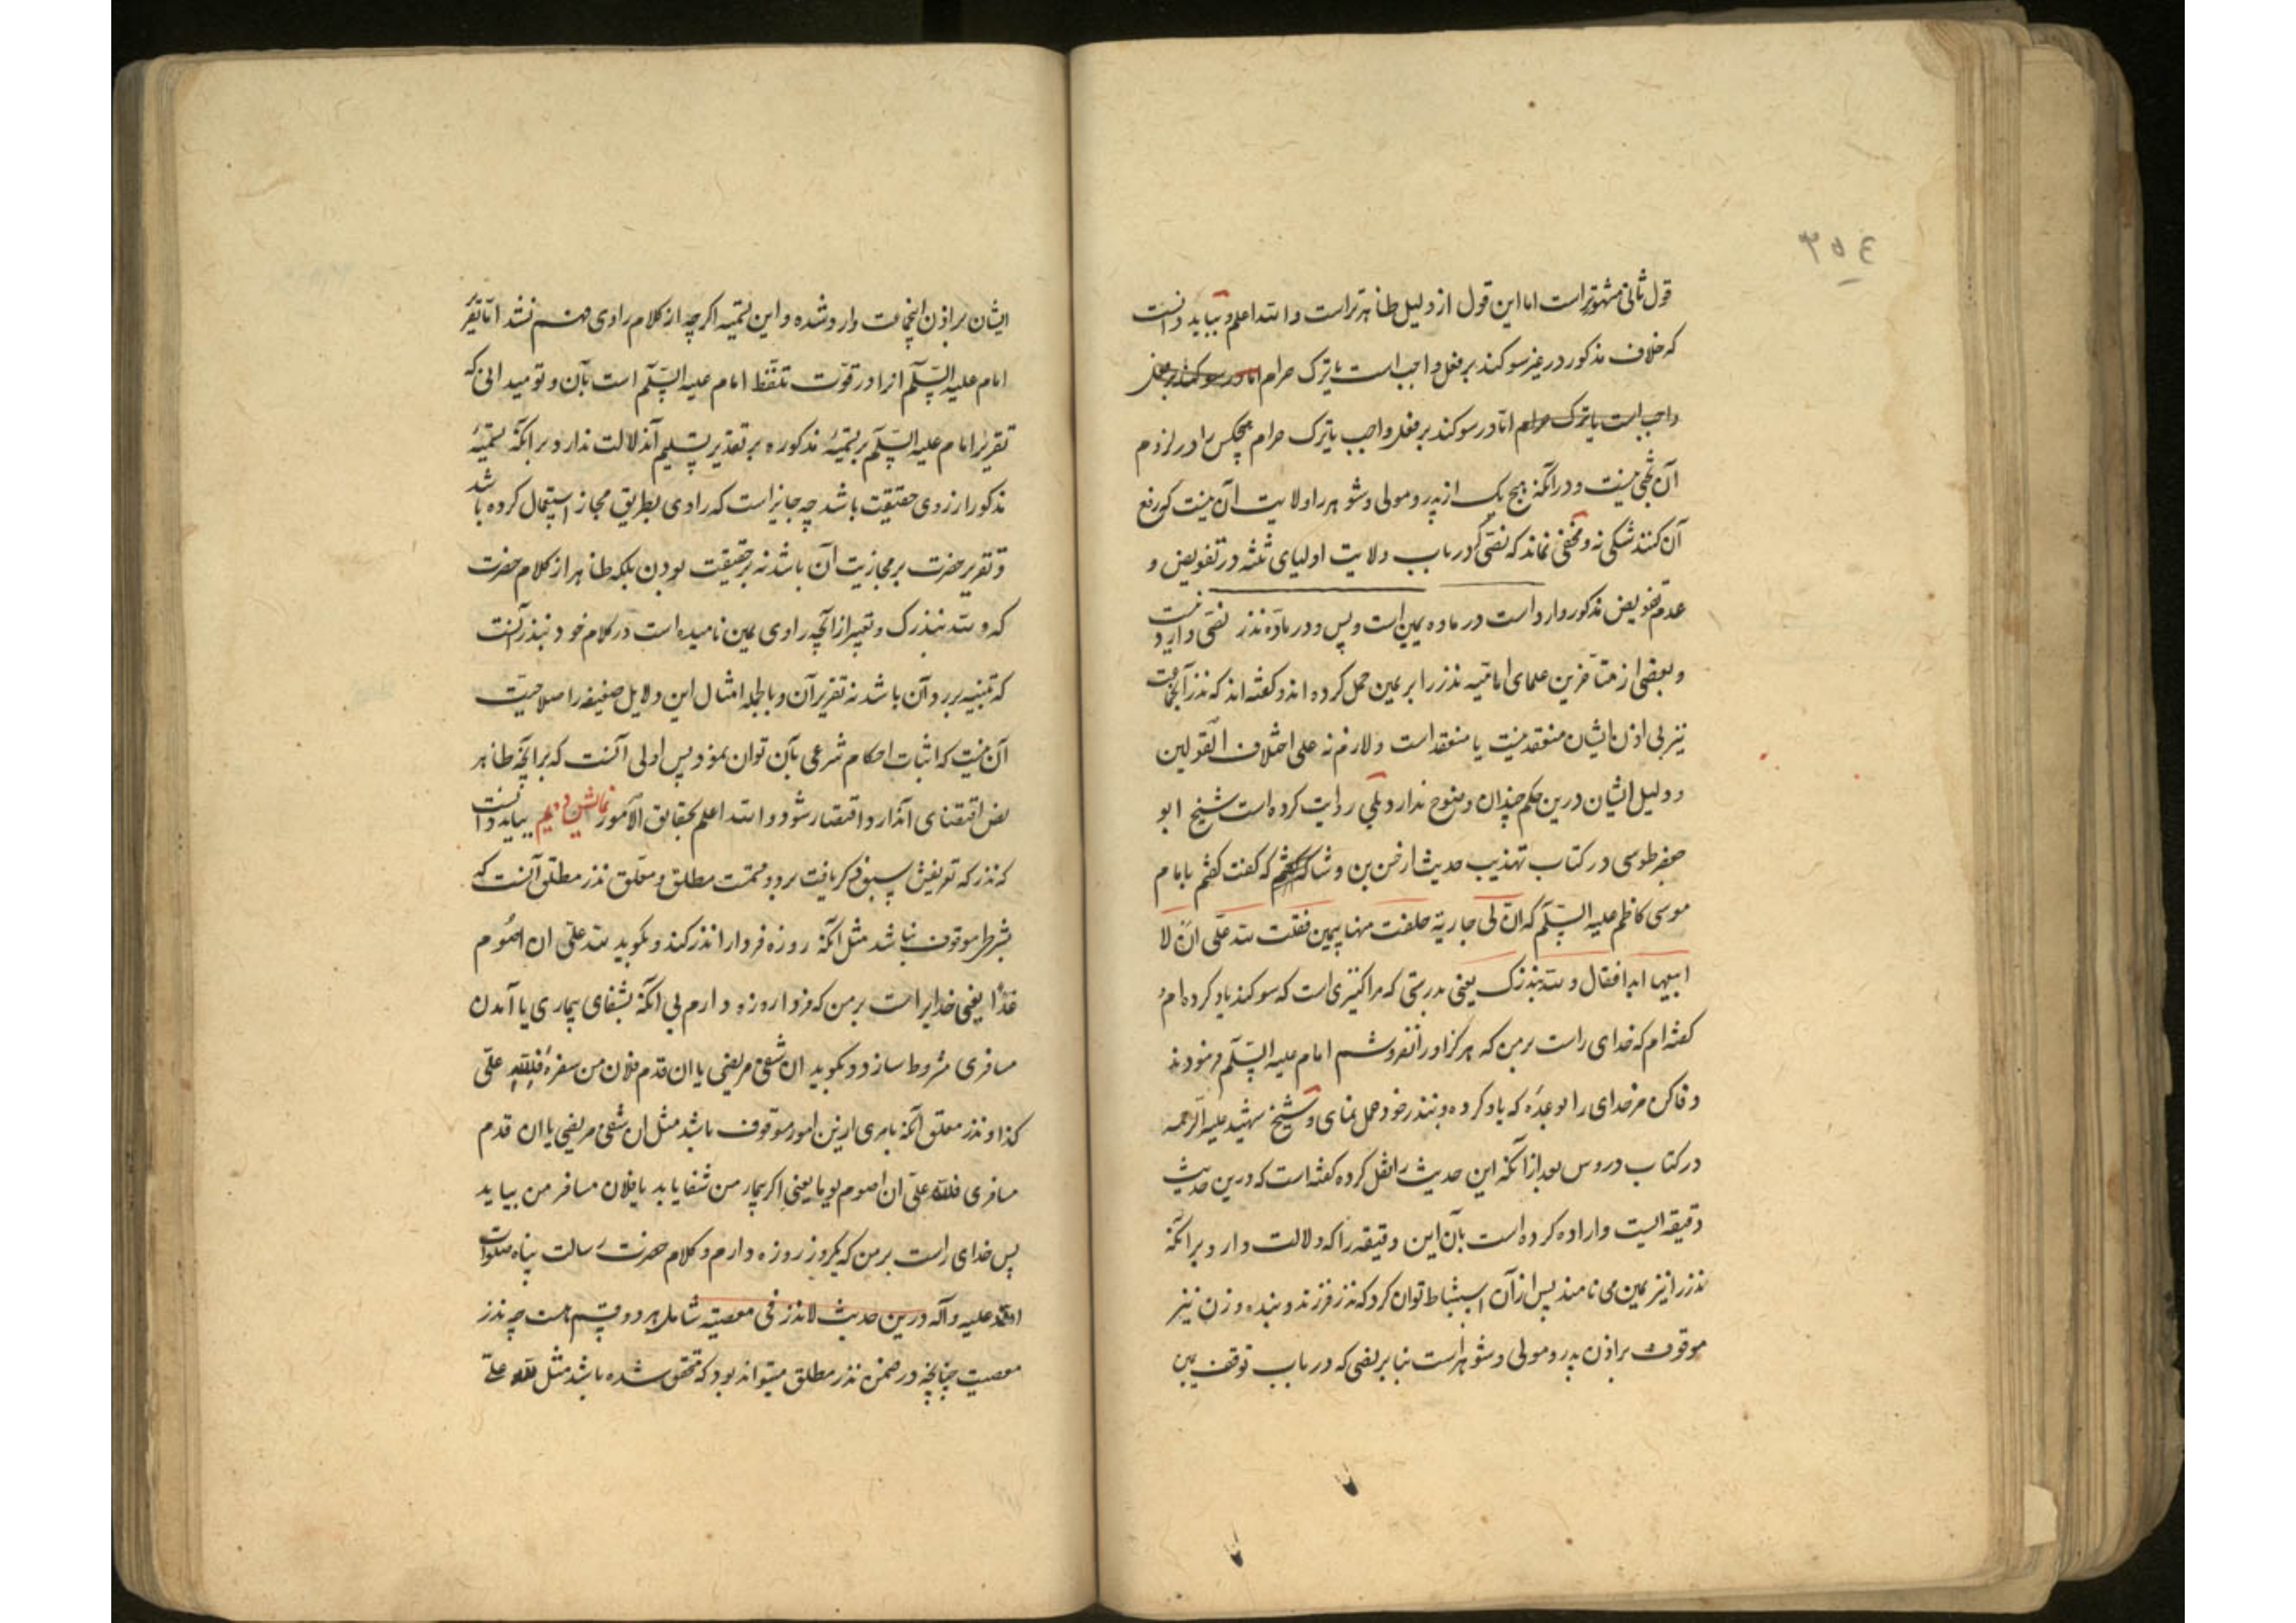 ۳۵۴
قول ثانی مشهورتر است اما این قول از دلیل ظاهرتر است و الله اعلم و بباید دانست
که خلاف مذکور در غیر سوکند بر فعل واجب است یا ترک حرام اما در سوکند بر فعل
واجب است یا ترک حرام اما در سوکند بر فعل واجب یا ترک حرام هیچکس را در لزوم
آن بحثی نیست و در آنکه هیچ یک از پدر و مولی و شوهر را ولایت آن نیست که رفع
آن کنند شکی نه و مخفی نماند که نصی که در باب ولایت اولیای ثلثه در تفویض و
عدم تفویض مذکور وارد است در ماده یمین است و بس و در ماده نذر نصی وارد نیست
و بعضی از متاخرین علمای امامیه نذر را بر یمین حمل کرده اند و کفته اند که نذر آنجماعت
نیز بی اذن ایشان منعقد نیست یا منعقد است و لازم نه علی اختلاف القولین
و دلیل ایشان درین حکم چندان وضوح ندارد بلی روایت کرده است شیخ ابو
جعفر طوسی در کتاب تهذیب حدیث از حسن بن وشا که کفت کفتم بامام
موسی کاظم علیه السّلم که انّ لی جاریة حلفت منها بیمین فقلت لله علّی ان لا
ابیعها ابدا فقال و لله بنذرک یعنی بدرستی که مرا کنیزی است که سوکند یاد کرده ام و
کفته ام که خدای راست بر من که هرکز او را نفروشم امام علیه السّلم فرمودند
وفا کن مر خدای را بوعدَه که یاد کرده و بنذر خود عمل نمای و شیخ شهید علیه الرّحمه
در کتاب دروس بعد از آنکه این حدیث را نقل کرده کفته است که درین حدیث
دقیقه ایست و اراده کرده است بآن این دقیقه را که دلالت دارد بر آنکه
نذر را نیز یمین می نامند پس از آن استنباط توان کرد که نذر فرزند و بنده و زن نیز
موقوف بر اذن پدر و مولی و شوهر است بنا بر نصی که در باب توقف یمین
ایشان بر اذن اینجماعت وارد شده و این تسمیه اکرچه از کلام راوی فهم شد اما تقریر
امام علیه السّلم آنرا در قوّت تلفّظ امام علیه السّلم است بآن و تو میدانی که
تقریر امام علیه السّلم بر تسمیهٔ مذکوره بر تقدیر تسلیم آن دلالت ندارد بر آنکه تسمیهٔ
مذکور از روی حقیقت باشد چه جایز است که راوی بطریق مجاز استعمال کرده باشد
و تقریر حضرت بر مجازیت آن باشد نه بر حقیقت بودن بلکه ظاهر از کلام حضرت
که و لله بنذرک و تعبیر از آنچه راوی یمین نامیده است در کلام خود بنذر آنست
که تنبیه بر رد آن باشد نه تقریر آن و بالجمله امثال این دلایل ضعیفه را صلاحیّت
آن نیست که اثبات احکام شرعی بآن توان نمود پس اولی آنست که بر آنچه ظاهر
نص اقتضای آن دارد اقتصار شود و الله اعلم بحقایق الامور نمایش دویم بباید دانست
که نذر که تعریفش سبق ذکر یافت بر دو قسمت مطلق و معلّق نذر مطلق آنست که
بشرط موقوف نباشد مثل آنکه روزه فردا را نذر کند و بکوید لله علّی ان اصوم
غدًا یعنی خدایراست بر من که فردا روزه دارم بی آنکه بشفای بیماری یا آمدن
مسافری مشروط سازد و بکوید ان شفی مریضی یا ان قدم فلان من سفره فلله علّی
کذا و نذر معلّق آنکه بامری ازین امور موقوف باشد مثل ان شفی مریضی یا ان قدم
مسافری فلله علّی ان اصوم یوما یعنی اکر بیمار من شفا یابد یا فلان مسافر من بیاید
پس خدای راست بر من که یکروز روزه دارم و کلام حضرت رسالت پناه صلوات
الله علیه و آله درین حدیث لا نذر فی معصیة شامل هر دو قسم هست چه نذر
معصیت چنانچه در ضمن نذر مطلق میتواند بود که متحقق شده باشد مثل لله علّی